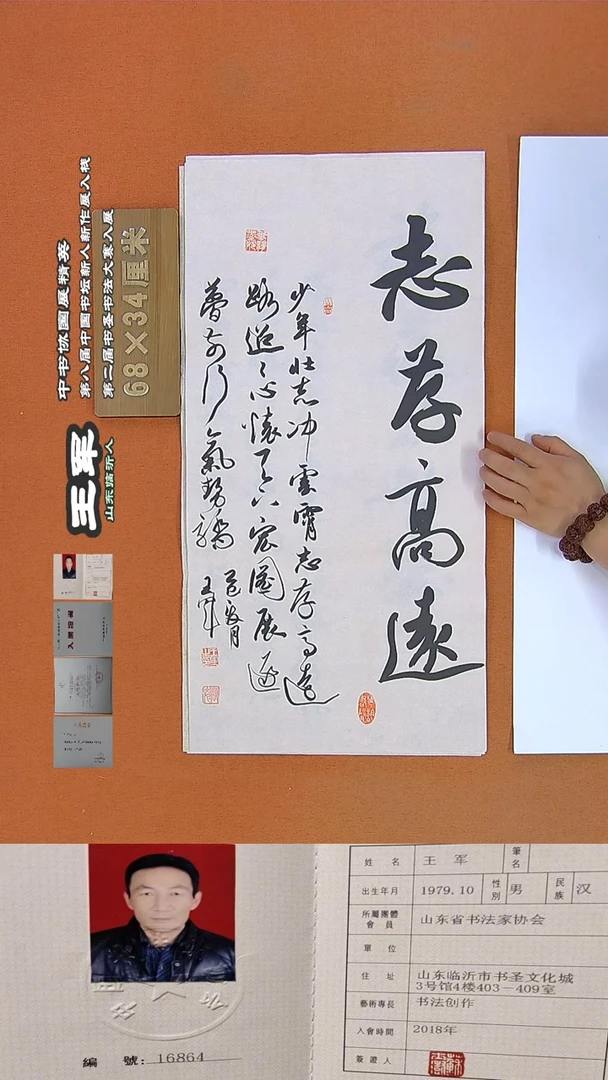 志存高遠
少年壮志冲雲霄志存高遠
路迢〻心懷天下宏圖展逐
夢前行氣勢驕
王軍
中书协国展精英
第八届中国书坛新人新作展入展
第二届书圣书法大赛入展
68×34厘米
王军
山东临沂人
编 號: 16864
姓 名 王 军 筆名
出生年月 1979.10 性別 男 民族 汉
所屬團體會員 山东省书法家协会
單 位
住 址 山东临沂市书圣文化城
3号馆4楼403－409室
藝術專長 书法创作
入會時間 2018年
簽證人